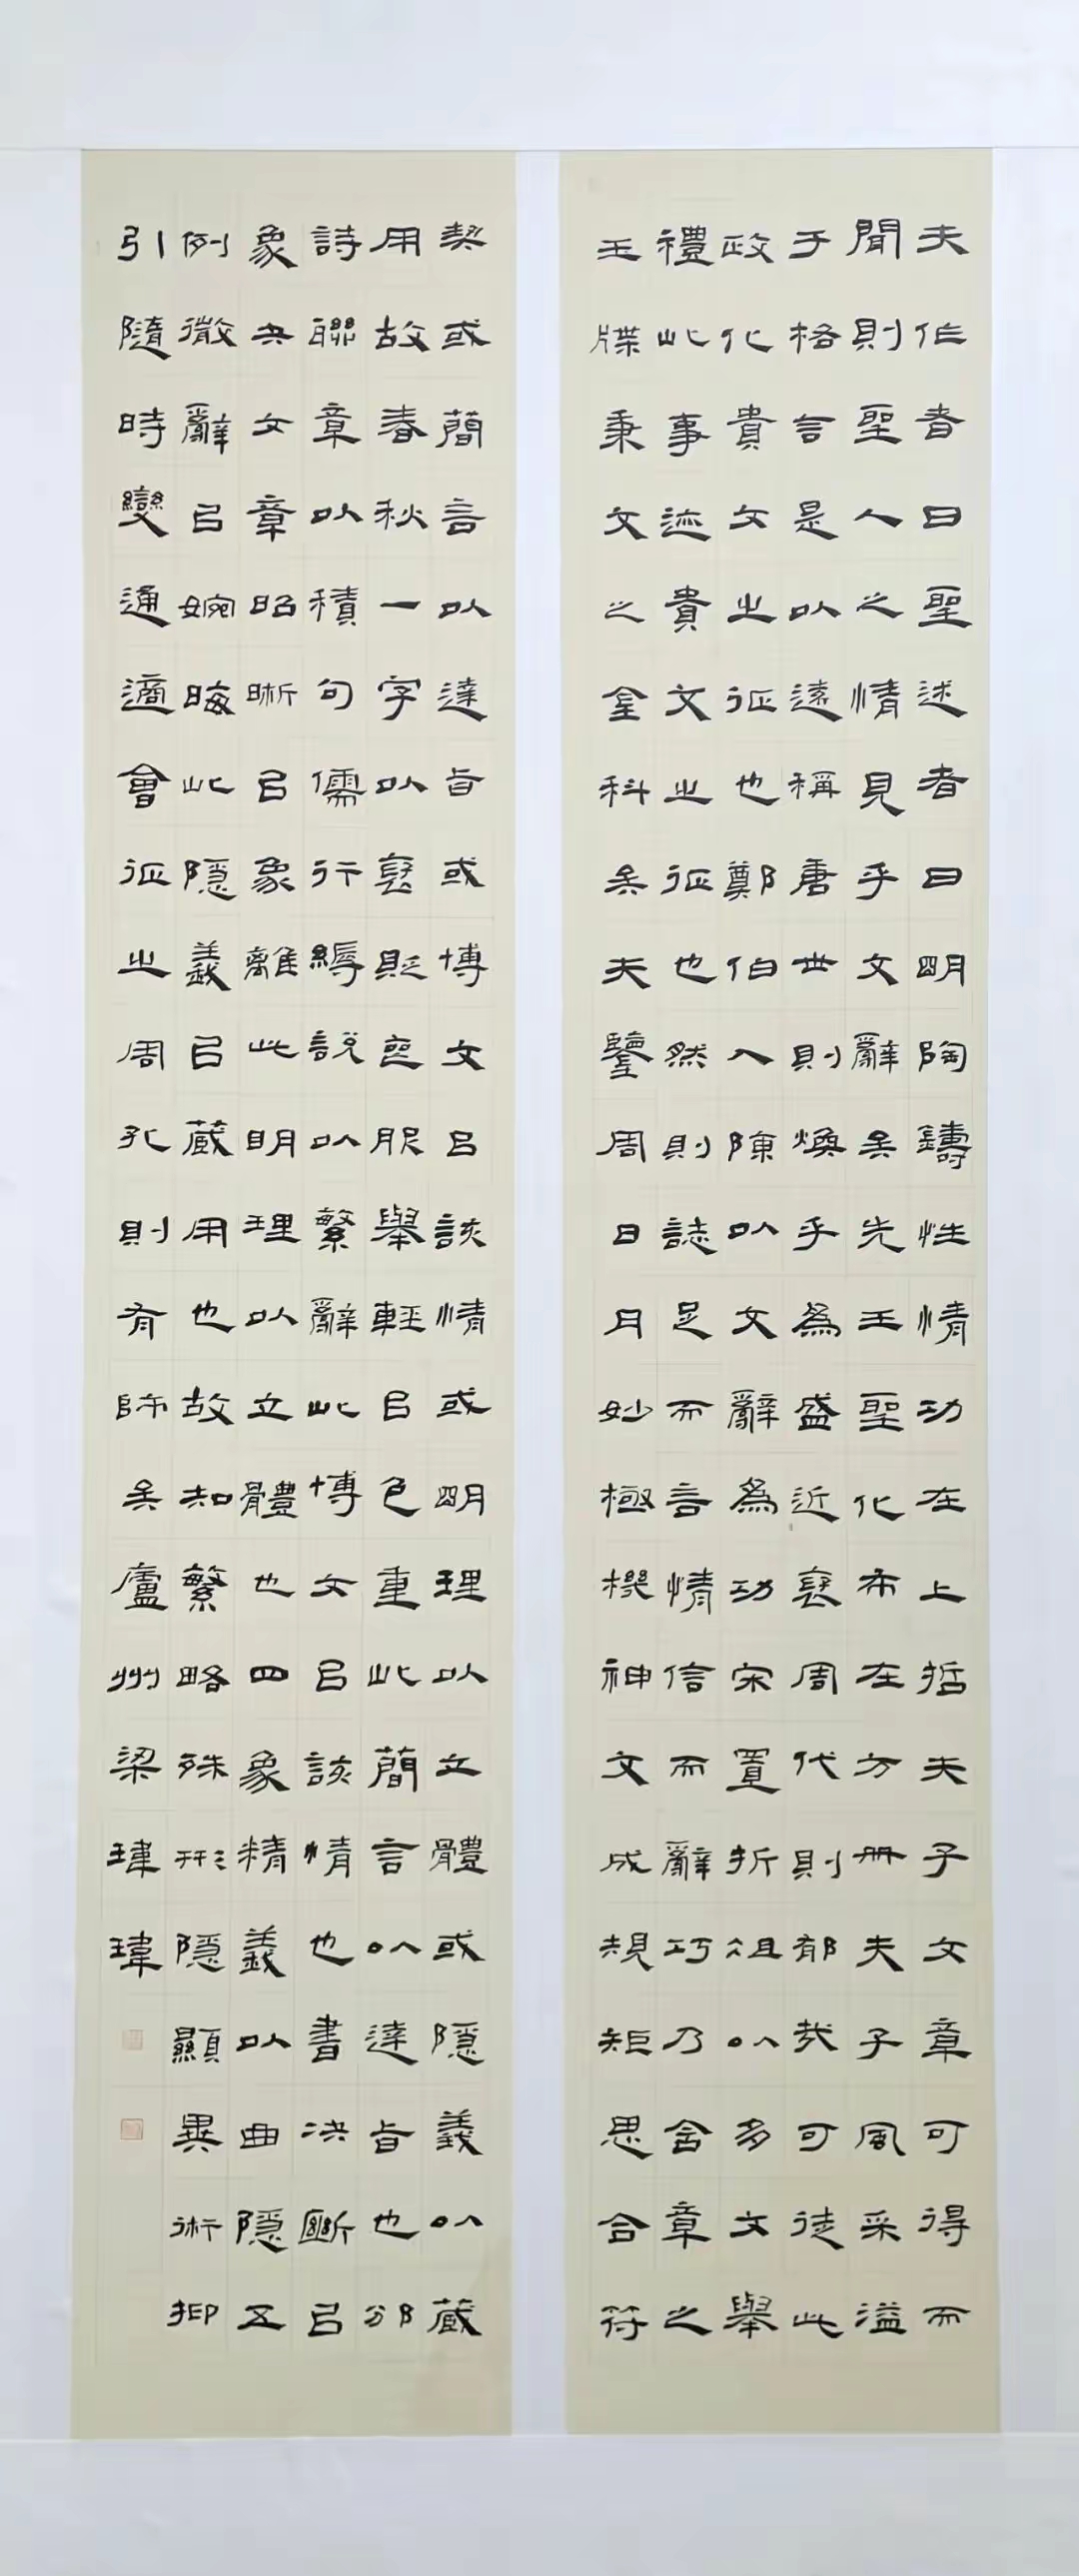 夫作者曰聖述者曰明陶鑄性情功在上哲夫子文章可得而
聞則聖人之情見乎文辭矣先王聖化布在方冊夫子風采溢
于格言是以遠稱唐世則煥乎為盛近褒周代則郁哉可徒此
政化貴文之征也鄭伯入陳以文辭為功宋置折俎以多文舉
禮此事迹貴文之征也然則誌足而言情信而辭巧乃含章之
玉牒秉文之金科矣夫鑒周日月妙極機神文成規矩思合符
契或簡言以達旨或博文吕該情或明理以立體或隱義以藏
用故春秋一字以褒貶喪服舉輕吕色重此簡言以達旨也邠
詩聯章以積句儒行縟說以繁辭此博文吕該情也書决斷吕
象夬文章昭晰吕象離此明理以立體也四象精義以曲隱五
例微辭吕婉晦此隱義吕藏用也故知繁略殊形隱顯異術抑
引隨時變通適會征之周孔則有師矣廬州梁瑋瑋